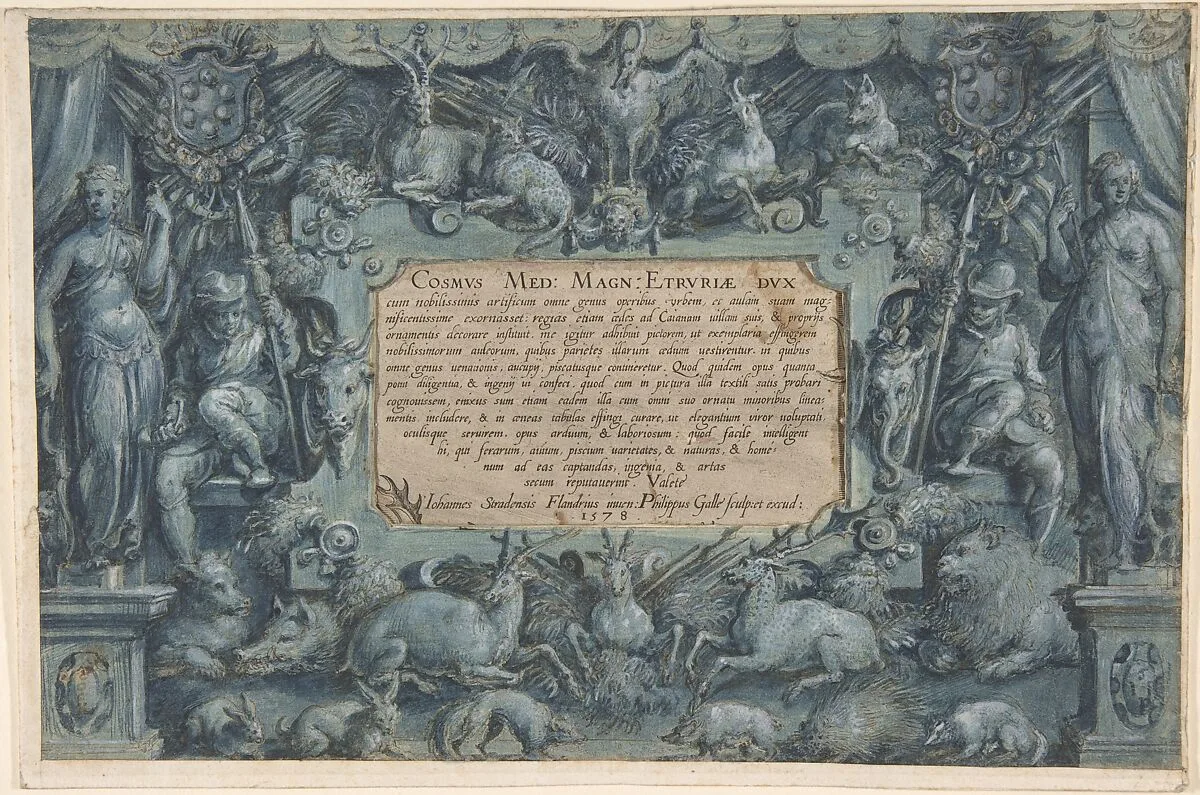 COSMVS MED: MAGN: ETRVRIÆ DVX
cum nobilissimis artificum omne genus operibus vrbem, et aulam suam mag-
nificentissime exornasset: regias etiam ædes ad Caianam uillam suis, & proprijs
ornamentis decorare instituit. me igitur adhibuit pictorem, ut exemplaria effingerem
nobilissimorum auleorum, quibus parietes illarum ædium uestirentur. in quibus
omne genus uenationis, aucupij, piscatusque contineretur. Quod quidem opus quanta
potui diligentia, & ingenij ui confeci. quod cum in pictura illa textili satis probari
cognouissem, enixus sum etiam eadem illa cum omni suo ornatu minoribus linea-
mentis includere, & in æneas tabulas effingi curare, ut elegantium viror uoluptati,
oculisque seruirem. opus arduum, & laboriosum: quod facile intelligent
hi, qui ferarum, auium, piscium uarietates, & naturas, & homi-
num ad eas captandas, ingenia, & artas
secum reputauerint. Valete
Iohannes Stradensis Flandrius inuen: Philippus Galle sculp: et excud:
1578